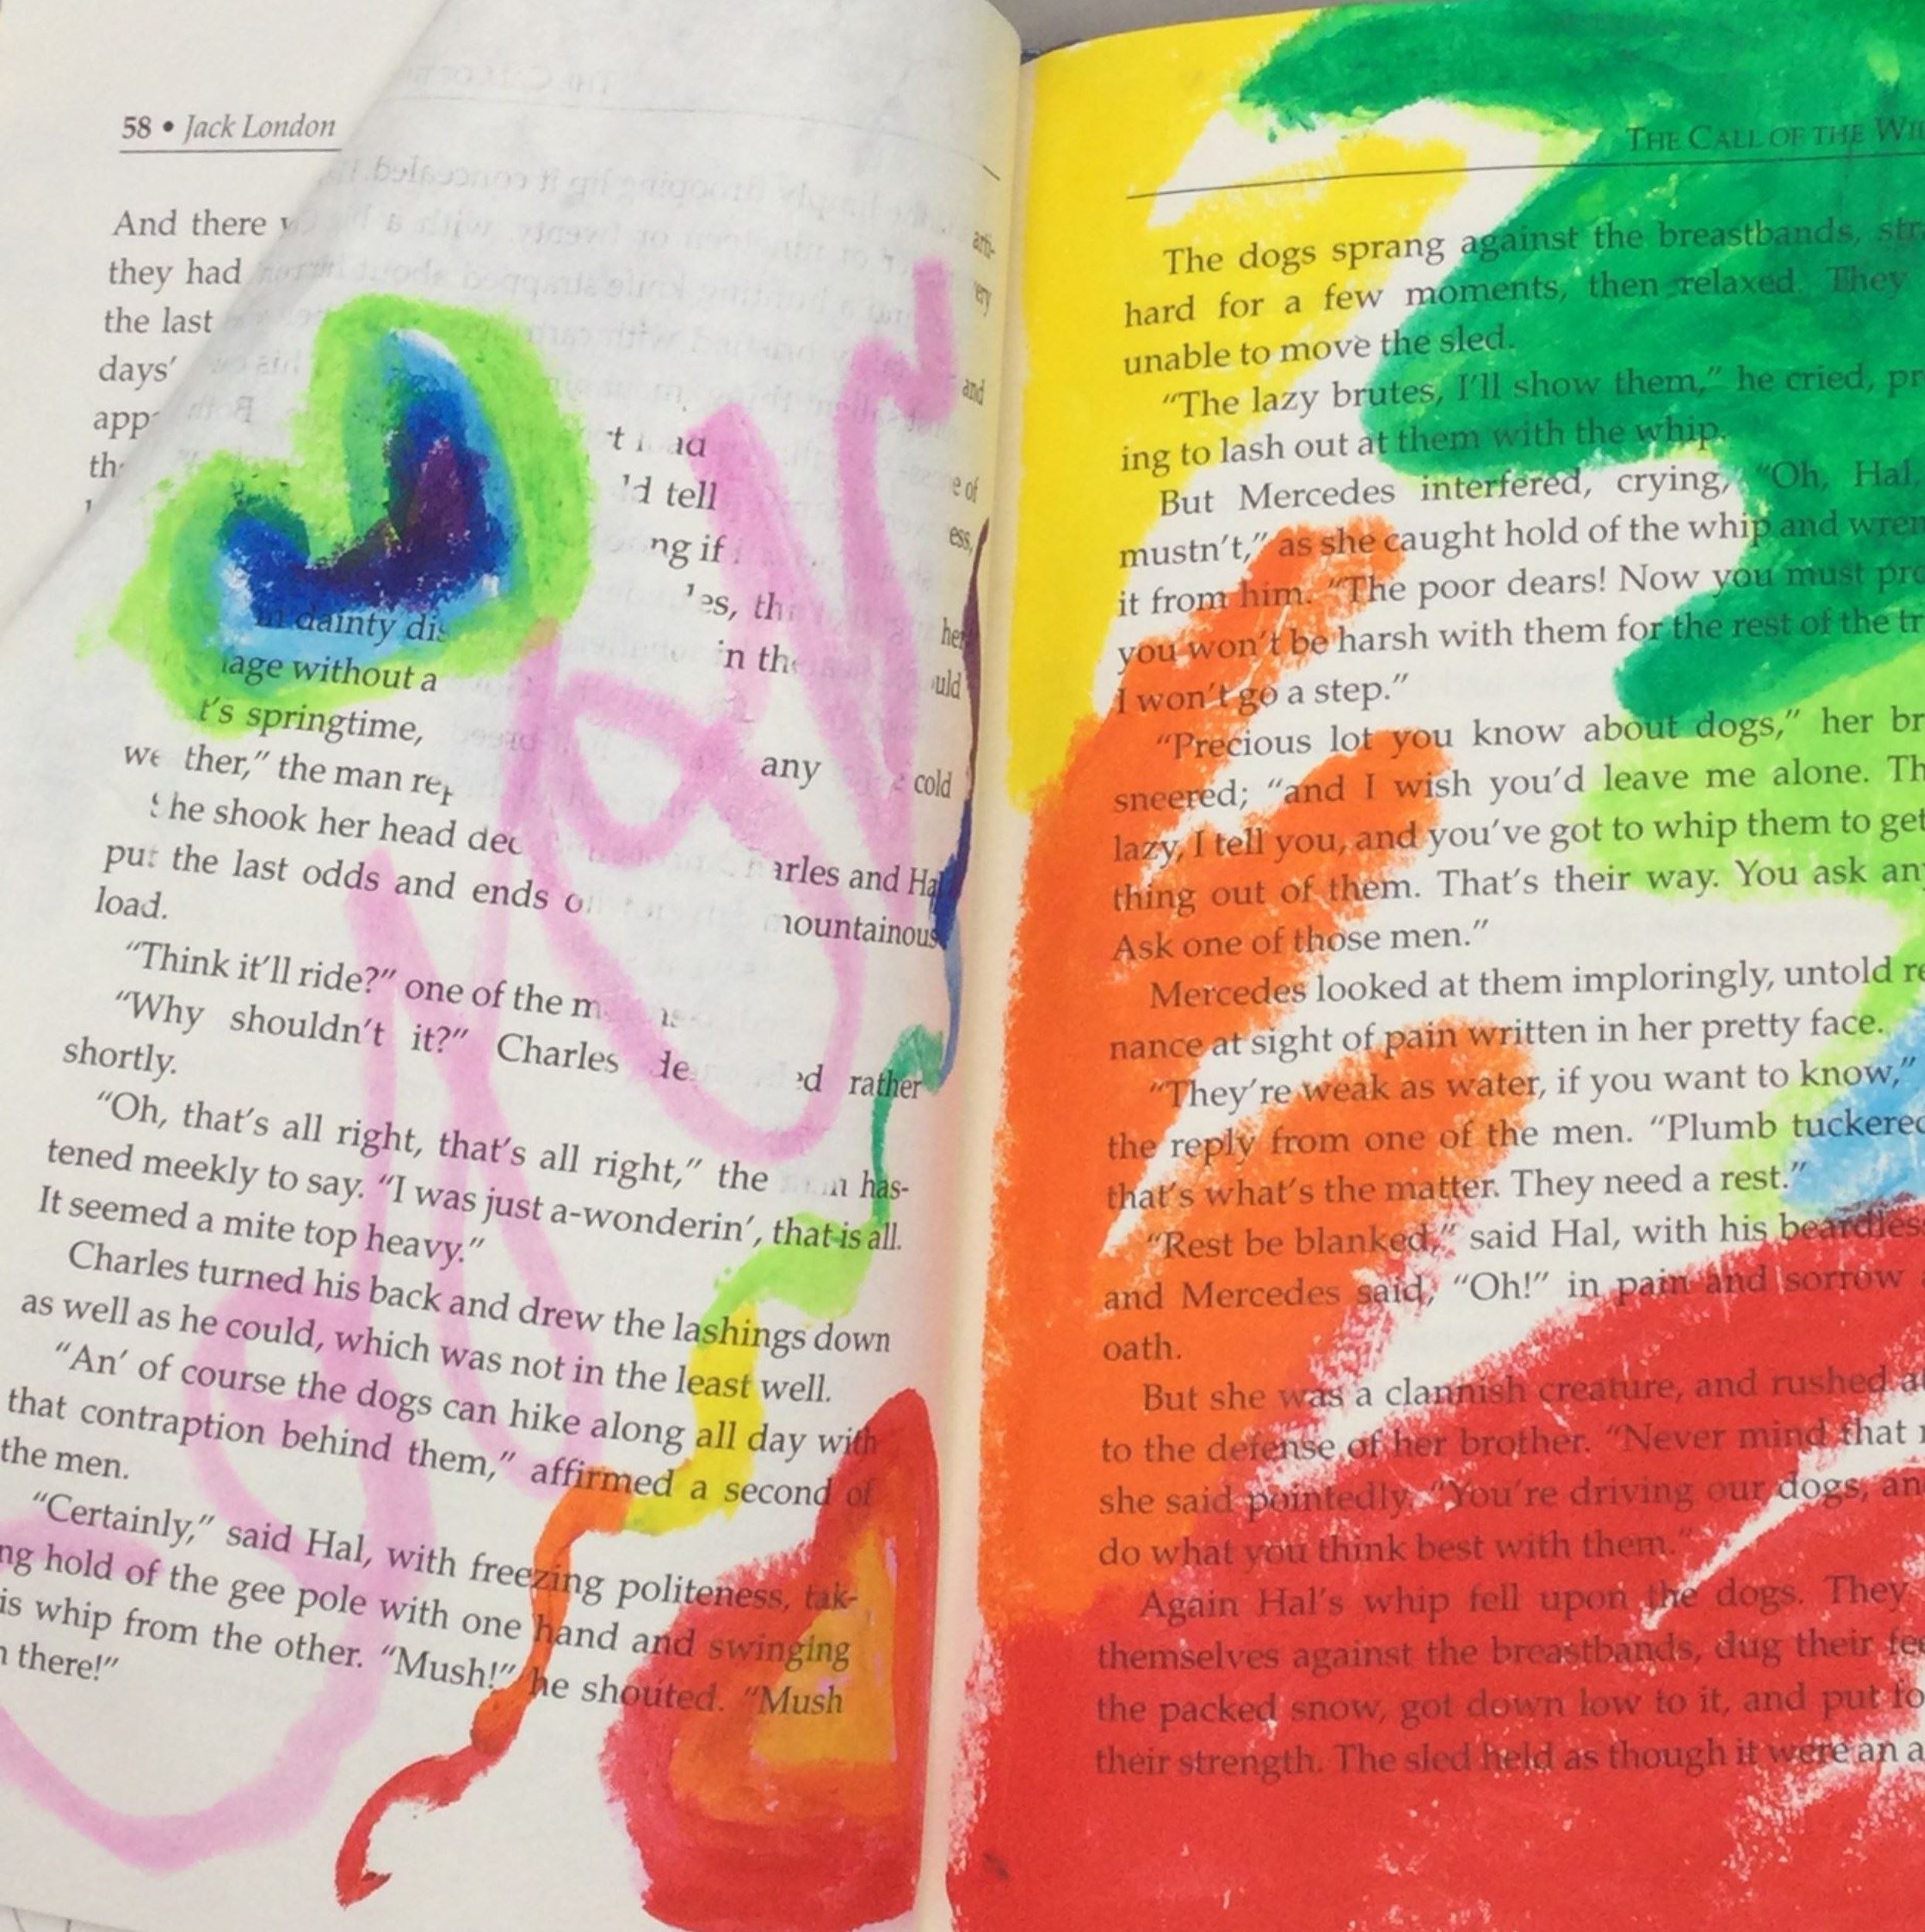 58 • Jack London
And there
they had
the last
days'
ad
tell
if
in
dainty
without a
springtime,
ther," the man
any cold
he shook her head and
put the last odds and ends mountainous
load.
"Think it'll ride?" one of the
"Why shouldn't it?" Charles rather
shortly.
"Oh, that's all right, that's all right," the has-
tened meekly to say. "I was just a-wonderin', that is all.
It seemed a mite top heavy."
Charles turned his back and drew the lashings down
as well as he could, which was not in the least well.
"An' of course the dogs can hike along all day with
that contraption behind them," affirmed a second of
the men.
"Certainly," said Hal, with freezing politeness, tak-
ng hold of the gee pole with one hand and swinging
is whip from the other. "Mush!" he shouted. "Mush
there!"
and
e of
ess,
her
uld
THE CALL OF THE
The dogs sprang against the breastbands, str
hard for a few moments, then relaxed. They
unable to move the sled.
"The lazy brutes, I'll show them," he cried, pr
ing to lash out at them with the whip.
But Mercedes interfered, crying, "Oh, Hal,
mustn't," as she caught hold of the whip and wren
it from him. "The poor dears! Now you must pro
you won't be harsh with them for the rest of the tr
I won't go a step."
"Precious lot you know about dogs," her br
sneered; "and I wish you'd leave me alone. Th
lazy, I tell you, and you've got to whip them to get
thing out of them. That's their way. You ask an
Ask one of those men."
Mercedes looked at them imploringly, untold re
nance at sight of pain written in her pretty face.
"They're weak as water, if you want to know,"
the reply from one of the men. "Plumb tuckered
that's what's the matter. They need a rest."
"Rest be blanked," said Hal, with his beardles
and Mercedes said, "Oh!" in pain and sorrow
oath.
But she was a clannish creature, and rushed at
to the defense of her brother. "Never mind that
she said pointedly. "You're driving our dogs, an
do what you think best with them."
Again Hal's whip fell upon the dogs. They
themselves against the breastbands, dug their fee
the packed snow, got down low to it, and put fo
their strength. The sled held as though it were an a